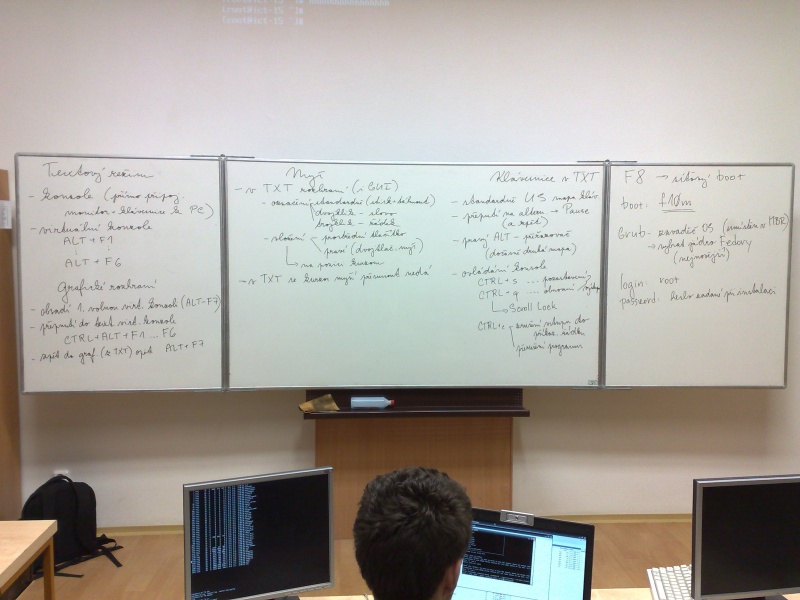 [root@ict-15 ~]#
[root@ict-15 ~]#
Textový režim
- konzole (přímo připoj.
monitor + klávesnice k PC)
- virtuální konzole
ALT + F1
ALT + F6
Grafické rozhraní
- obsadí 1. volnou virt. konzoli (ALT-F7)
- přepnutí do text. virt. konzole
CTRL + ALT + F1 ... F6
- zpět do graf (z TXT) opět ALT + F7
Myš
- v TXT rozhraní (i GUI)
- označení standardní
dvojklik - slovo
trojklik - řádek
- vložení
prostřední tlačítko
pravé (dvojtlač. myš)
na pozici kurzoru
- v TXT se kurzor myší přesunout nedá
Klávesnice v TXT
- standardně US mapa kláv.
- přepnutí na altern. → Pause
(a zpět)
- pravý ALT - přeřazovač
(dočasně druhá mapa)
- ovládání konzole
CTRL + s .... pozastavení
CTRL + q .... obnovení
Scroll Lock
CTRL + c
zrušení vstupu do
příkaz. řádku
přerušení programu
F8 → síťový boot
boot: f10m
Grub - zavaděč OS (umístěn v MBR)
→ vybrat jádro Fedory
(nejnovější)
login: root
password: heslo zadané při instalaci